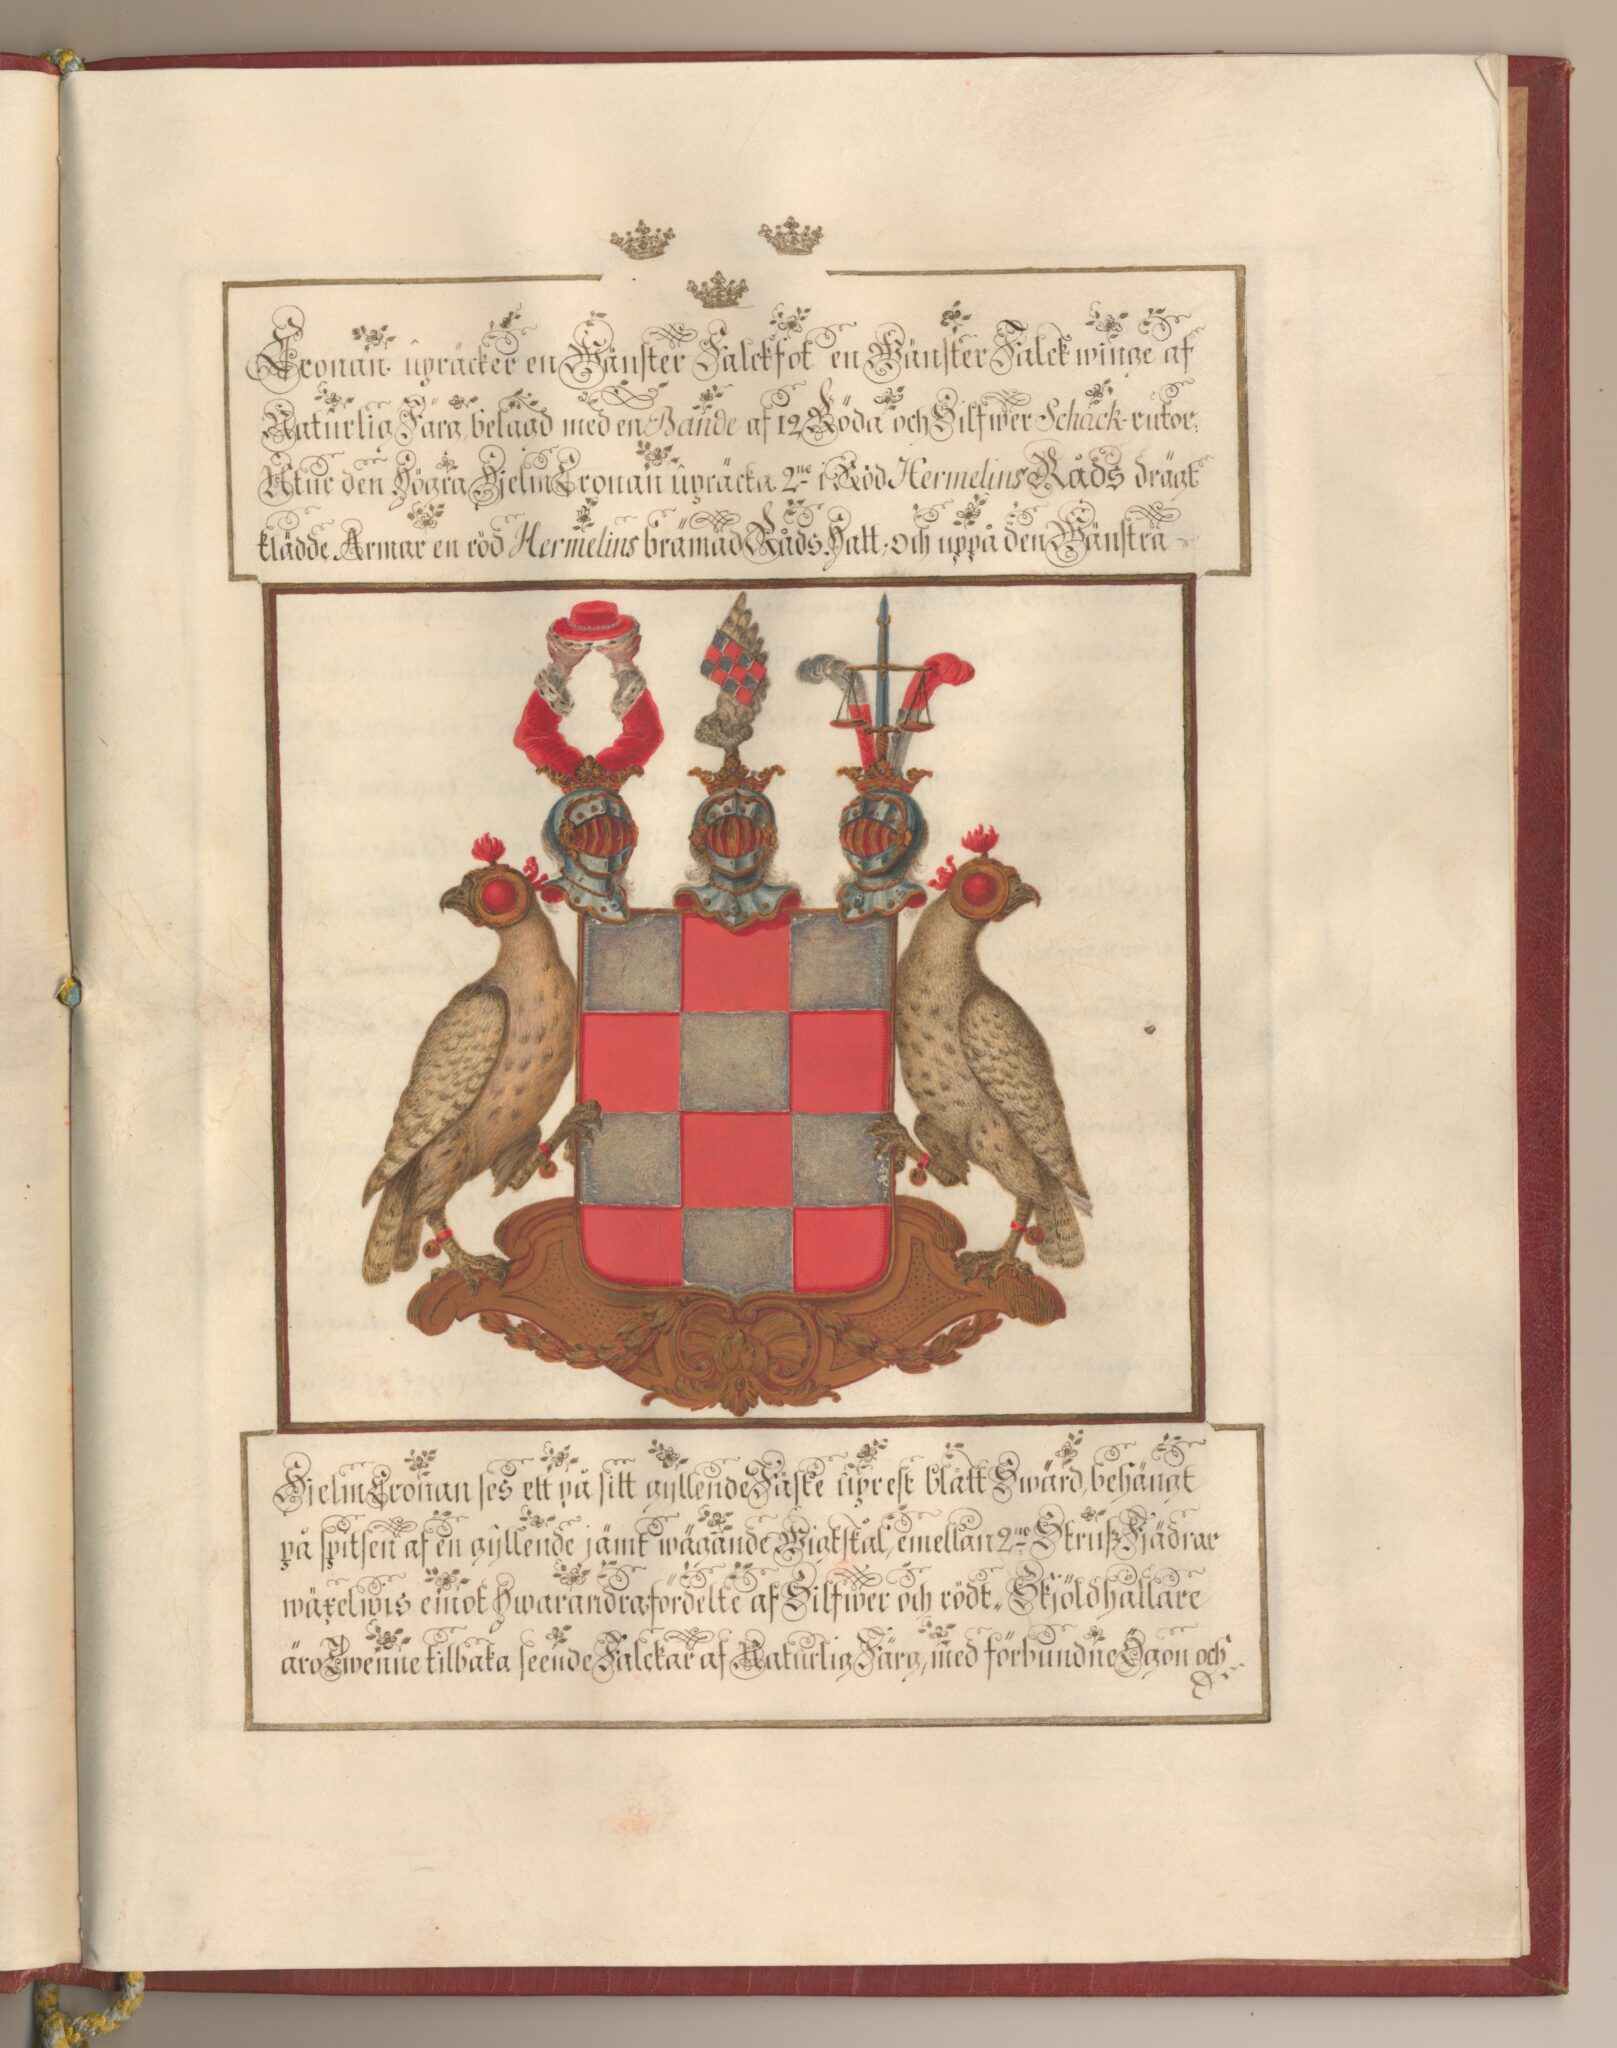 Cronan. upräcker en Wänster Falckfot en Wänster Falckwinge af
Naturlig Färg, belagd med en Bande af 12 Röda och Silfwer Schack-rutor.
Utur den Högra Hjelm Cronan upräcka 2ne i Röd Hermelins Råds drägt
klädde Armar en röd Hermelins brämad Råds Hatt, och uppå den Wänstra
Hjelm Cronan ses ett på sitt gyllende Fäste uprest blått Swärd, behängt
på spitsen af en gyllende jämt wägande Wigtskal, emellan 2ne Struß Fjädrar
wäxelwis emot hwarandra fördelte af Silfwer och rödt. Skjöldhållare
äro Twenne tilbaka seende Falckar af Naturlig Färg, med förbundne Ögon och